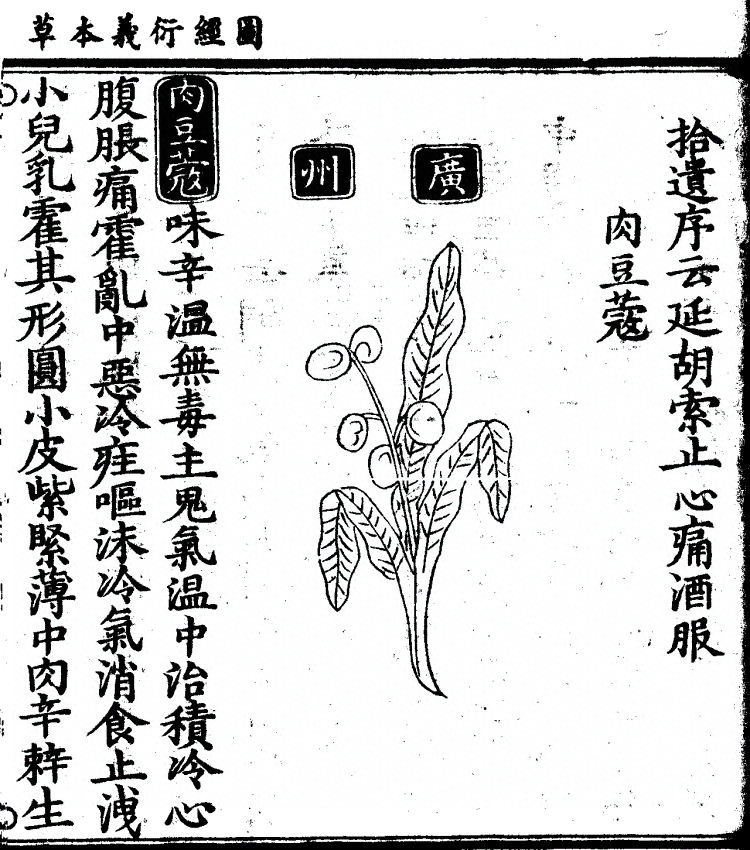 圖經衍義本草
拾遺序云延胡索止心痛酒服
肉豆蔻
廣州
肉豆蔻味辛温無毒主鬼氣温中治積冷心
腹脹痛霍亂中惡冷疰嘔沫冷氣消食止洩
小兒乳霍其形圓小皮紫緊薄中肉辛辣生